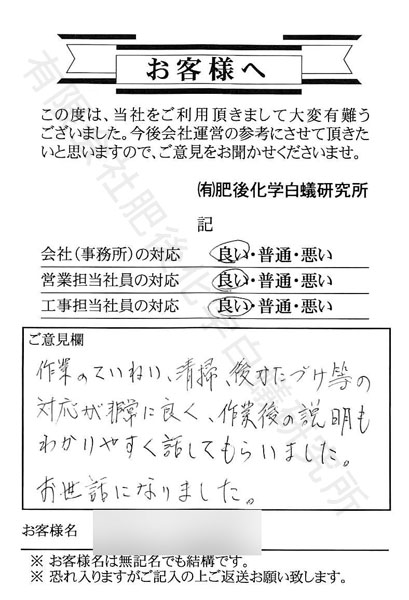 お客様へ
この度は、当社をご利用頂きまして大変有難う
ございました。今後会社運営の参考にさせて頂きた
いと思いますので、ご意見をお聞かせくださいませ。
㈲肥後化学白蟻研究所
記
会社(事務所)の対応 良い・普通・悪い
営業担当社員の対応 良い・普通・悪い
工事担当社員の対応 良い・普通・悪い
ご意見欄
作業のていねい、清掃、後かたづけ等の
対応が非常に良く、作業後の説明も
わかりやすく話してもらいました。
お世話になりました。
お客様名
※ お客様名は無記名でも結構です。
※ 恐れ入りますがご記入の上ご返送お願い致します。
有限会社肥後化学白蟻研究所